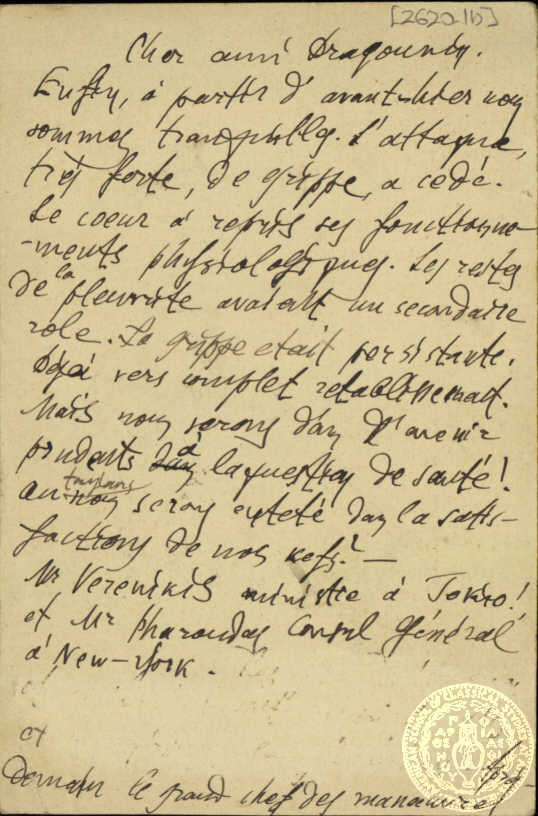 [2620-1b]
Cher ami Dragoumis.
Enfin, à partir d'avant-hier nous
sommes tranquilles. L'attaque,
très forte, de grippe, a cédé.
Le coeur a repris ses fonctionne-
-ments physiologiques. Les restes
de la pleurite avaient un secondaire
role. La grippe etait persistante.
Déjà vers complet retablissement.
Mais nous serons dans l'avenir
prudents à la question de santé!
au toujours serons enteté dans la satis-
factions de nos kefs? —
Mr Verenikis ministre à Tokio!
et Mr Pharandas Consul Général
à New-York.
et
Demain le grand chef des manoeuvres